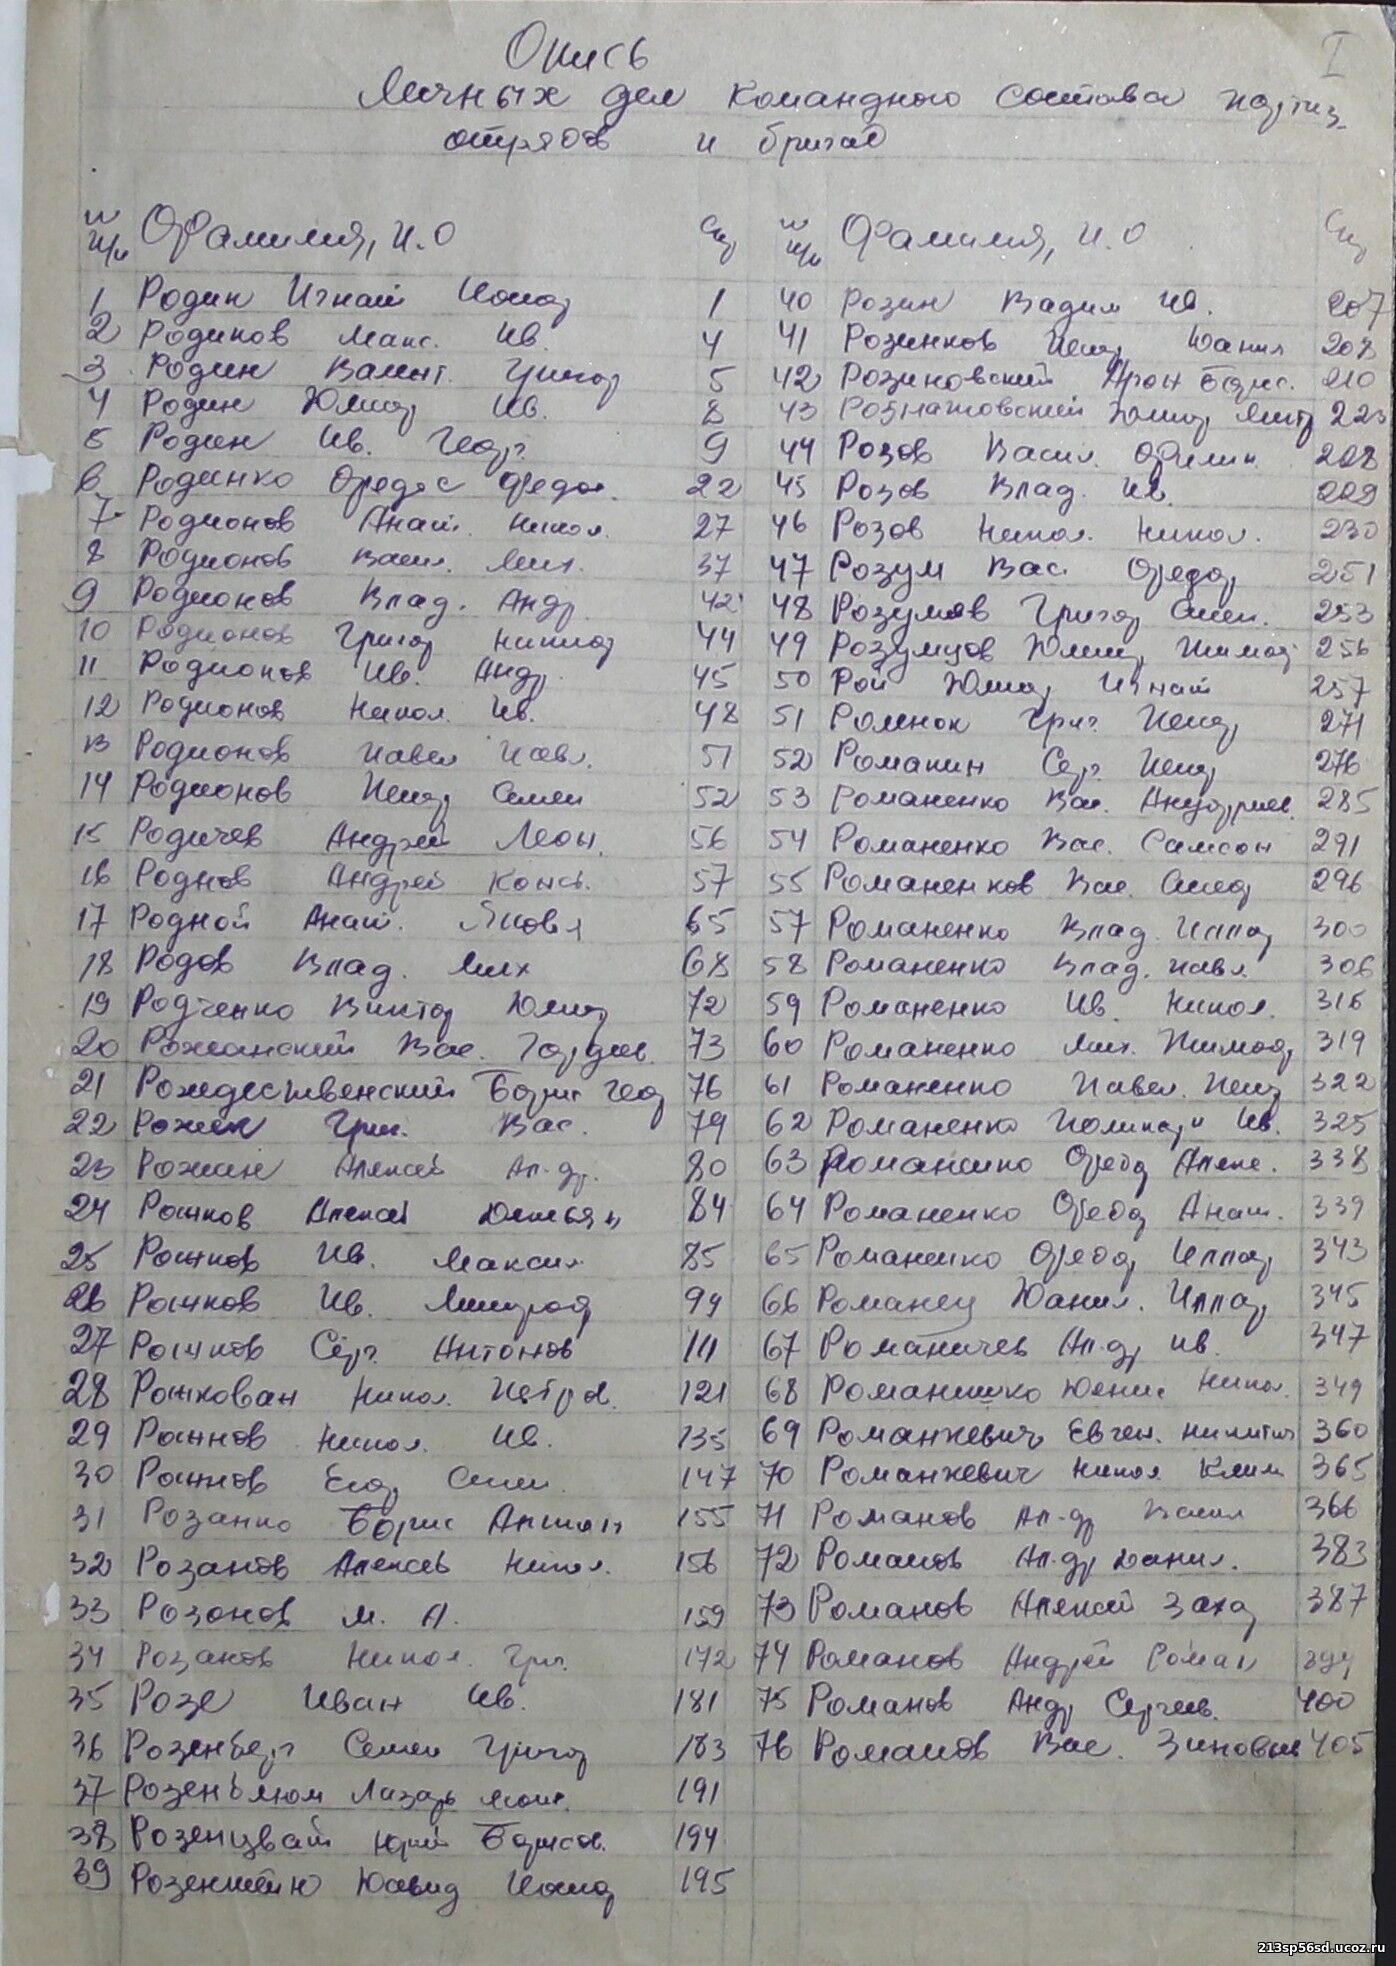 I
Опись
Личных дел командного состава партиз.
отрядов и бригад
Фамилия, И.О Стр
1 Родин Игнат 1
2 Родиков Макс. Ив. 4
3 Родин Валент. Григор 5
4 Родин Ив. 8
5 Родин Ив. Геор. 9
6 Родинко Федос Федос. 22
7 Родионов Анат. Никол. 27
8 Родионов Васил. Мих. 37
9 Родионов Влад. Андр 42
10 Родионов Григор 44
11 Родионов Ив. Андр. 45
12 Родионов Никол. Ив. 48
13 Родионов Павел Павл. 51
14 Родионов Петр Семен 52
15 Родичев Андрей Леон. 56
16 Роднов Андрей Конст. 57
17 Родной Анат. Яковл 65
18 Родов Влад. Мих 68
19 Родченко Виктор Дмитр 72
20 Рожанский Вас. Гордеев. 73
21 Рождественский Борис Геор 76
22 Рожин Григ. Вас. 79
23 Рожин Алексей Ал-др. 80
24 Рожков Алексей Демьян 84
25 Рожков Ив. Максим 85
26 Рожков Ив. Митроф 94
27 Рожков Серг. Антонов 111
28 Рожкован Никол. Петров. 121
29 Рожнов Никол. Ив. 135
30 Рожнов Егор Семен. 147
31 Розанко Борис 155
32 Розанов Алексей Никол. 156
33 Розонов М. А. 159
34 Розанов Никол. Григ. 172
35 Розе Иван Ив. 181
36 Розенберг Семен Григор 183
37 Розенблюм Лазарь Моис. 191
38 Розенцвайг Юрий Борисов. 194
39 Розенштейн Давид 195
Фамилия, И.О Стр
40 Розин Вадим Ив. 207
41 Розинков Петр Данил 208
42 Розиновский Арон Борис. 210
43 Дмитр Дмитр 223
44 Розов Васил. Филип. 228
45 Розов Влад. Ив. 229
46 Розов Никол. Никол. 230
47 Розум Вас. Федор 251
48 Розумов Григор Семен. 253
49 Розумцов Дмитр Тимоф 256
50 Рой Дмитр Игнат 257
51 Григ. Петр 271
52 Романин Серг. Петр 276
53 Романенко Вас. Ануфриев. 285
54 Романенко Вас. Самсон 291
55 Романенков Вас. 296
57 Романенко Влад. Иллар 300
58 Романенко Влад. Павл 306
59 Романенко Ив. Никол. 316
60 Романенко Мих. Тимоф 319
61 Романенко Павел. Петр 322
62 Романенко Поликарп Ив. 325
63 Романенко Федор Алекс. 338
64 Романенко Федор Анат. 339
65 Романенко Федор Иллар 343
66 Романец Данил. Иллар 345
67 Романичев Ал-др Ив. 347
68 Романишко Денис Никол. 349
69 Романкевич Евген. Никитич 360
70 Романкевич Никол Клим 365
71 Романов Ал-др Васил 366
72 Романов Ал-др Данил. 383
73 Романов Алексей Захар 387
74 Романов Андрей Роман 394
75 Романов Андр Сергеев. 400
76 Романов Вас. Зиновьев 405
213sp56sd.ucoz.ru